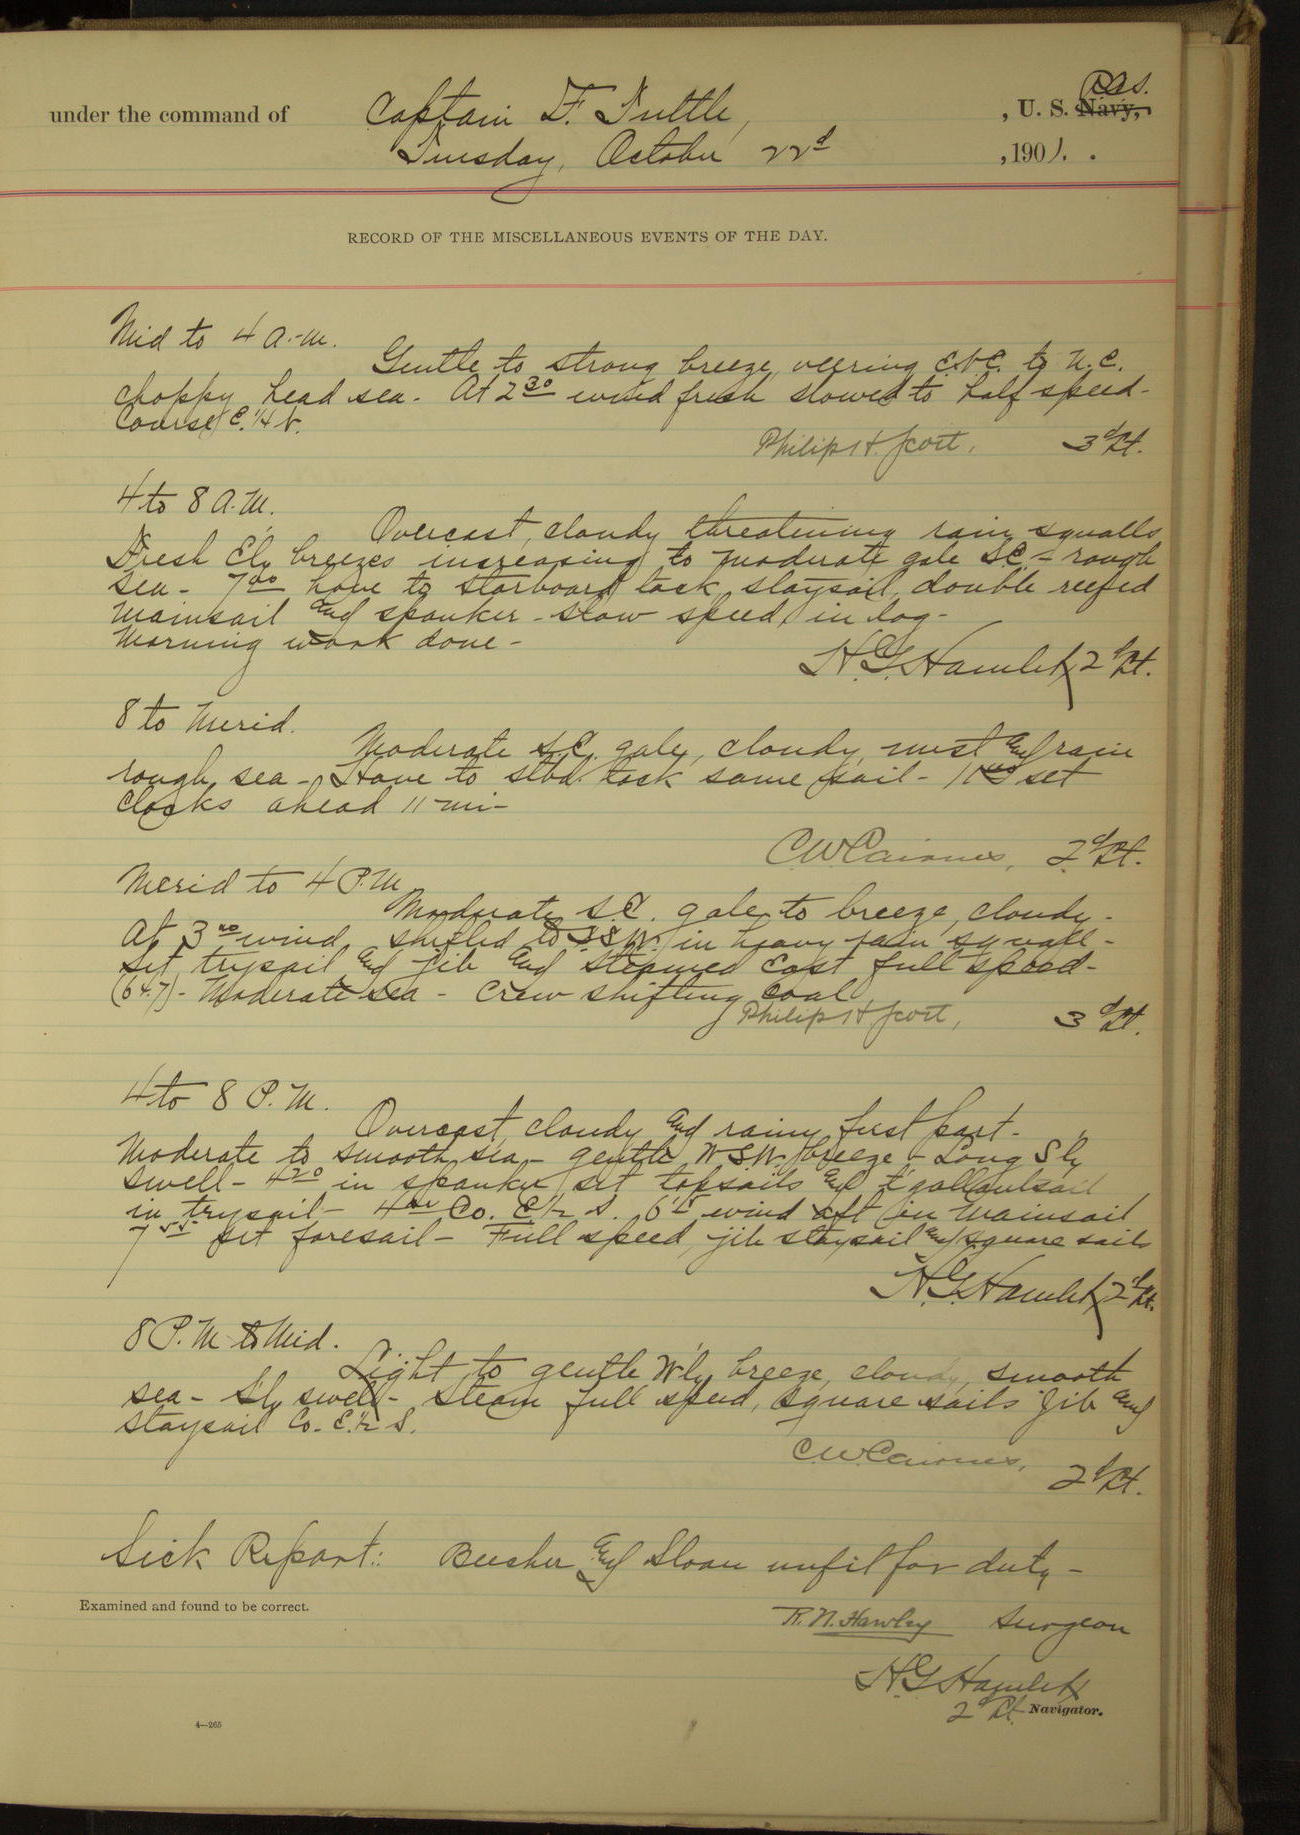 under the command of Captain F. Tuttle, , U. S. Navy, R.C.S.
Tuesday, October 22d , 1901. .
RECORD OF THE MISCELLANEOUS EVENTS OF THE DAY.
Mid to 4 a.m.
Gentle to strong breeze, veering E.N.E. to N.E.
choppy head sea - At 2 30 wind fresh slowed to half speed -
Course E. 1/4 N.
Philip H. Scott, 3d Lt.
4 to 8 A.M.
Overcast, cloudy threatening rain squalls
Fresh Ely breezes increasing to moderate gale S.E. - rough
sea - 7 00 hove to starboard tack staysail, double reefed
Mainsail and spanker - slow speed, in log -
Morning work done -
H.G. Hamlet, 2d Lt.
8 to Merid.
Moderate S.E. gale, cloudy, mist and rain
rough sea - Hove to stbd. tack same sail - set
Clocks ahead 11 mi -
C.W. Cairnes, 2d Lt.
Merid to 4 P.M.
Moderate S.E. gale to breeze, cloudy -
At 3 00 wind shifted to S.S.W. in heavy rain squall -
Set trysail and jib and steamed East full speed -
(64.7) - Moderate sea - Crew shifting coal
Philip H. Scott, 3d Lt.
4 to 8 P.M.
Overcast, cloudy and rainy first part -
Moderate to smooth sea - gentle WSW. breeze - Long Sly
Swell - 4 20 in spanker, set topsails and t'gallantsail
in trysail - Co. E 1/2 S. 6 15 wind aft in Mainsail
7 55 set foresail - Full speed, jib staysail and square sails
H.G. Hamlet, 2d Lt.
8 P.M. to Mid.
Light to gentle W'ly breeze, cloudy, smooth
sea - Sly swell - Steam full speed, square sails jib and
staysail Co. E. 1/2 S.
C.W. Cairnes, 2d Lt.
Sick Report: Beecher and Sloan unfit for duty -
Examined and found to be correct.
R.N. Hawley Surgeon
H.G. Hamlet
2d Lt. Navigator.
4—265